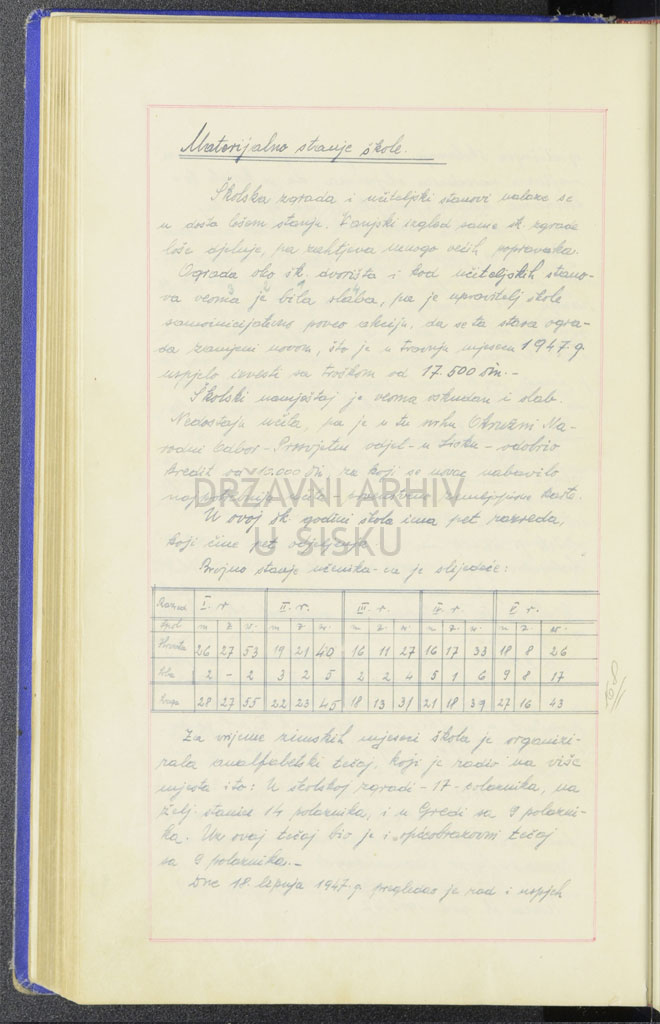 Materijalno stanje škole.
Školska zgrada i učiteljski stanovi nalaze se
u dosta lošem stanju. Vanjski izgled same šk. zgrade
loše djeluje, pa zahtjeva mnogo većih popravaka.
Ograda oko šk. dvorišta i kod učiteljskih stano-
va veoma je bila slaba, pa je upravitelj škole
samoinicijativno poveo akciju, da se ta stara ogra-
da zamjeni novom, što je u travnju mjesecu 1947. g.
uspjelo izvesti sa troškom od 17.500 din. -
Školski namještaj je veoma oskudan i slab.
Nedostaju učila, pa je u tu svrhu Okružni Na-
rodni Odbor - Prosvjetni odjel - u Sisku - odobrio
kredit od 10.000 din za koji se novac nabavilo
najpotrebnija učila - zemljopisne karte.
U ovoj šk. godini škola ima pet razreda,
koji čine pet odjeljenja.
Brojno stanje učenika-ca je slijedeće:
Razred I. r. II. r. III. r. IV. r. V. r.
Spol m ž m ž m ž m ž m ž
Hrvata 26 27 53 19 21 40 16 11 27 16 17 33 18 8 26
Srba 2 - 2 3 2 5 2 2 4 5 1 6 9 8 17
Svega 28 27 55 22 23 45 18 13 31 21 18 39 27 16 43
Za vrijeme zimskih mjeseci škola je organizi-
rala analfabetski tečaj, koji je radio na više
mjesta i to: U školskoj zgradi - 17 - polaznika, na
želj. stanici 14 polaznika, i u Gredi sa 9 polazni-
ka. Uz ovaj tečaj bio je i općeobrazovni tečaj
sa 9 polaznika. -
Dne 18. lipnja 1947. g. pregledao je rad i uspjeh
DRŽAVNI ARHIV
U SISKU